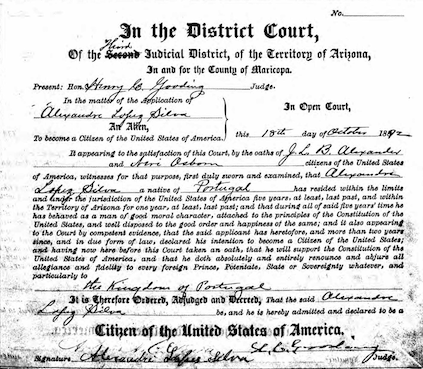 No.
In the District Court,
Of the Third Second Judicial District, of the Territory of Arizona,
In and for the County of Maricopa.
Present: Hon. Henry C. Gooding Judge.
In the matter of the Application of
Alexandre Lopez Silva
An Alien,
To become a Citizen of the United States of America.
In Open Court,
this 18th day of October 1892
It appearing to the satisfaction of this Court, by the oaths of J. L. B. Alexander
and Neri Osborn citizens of the United States
of America, witnesses for that purpose, first duly sworn and examined, that Alexandre
Lopez Silva a native of Portugal has resided within the limits
and under the jurisdiction of the United States of America five years, at least, last past, and within
the Territory of Arizona for one year, at least, last past; and that during all of said five years' time he
has behaved as a man of good moral character, attached to the principles of the Constitution of the
United States, and well disposed to the good order and happiness of the same; and it also appearing
to the Court by competent evidence, that the said applicant has heretofore, and more than two years
since, and in due form of law, declared his intention to become a Citizen of the United States;
and having now here before this Court taken an oath, that he will support the Constitution of the
United States of America, and that he doth absolutely and entirely renounce and abjure all
allegiance and fidelity to every foreign Prince, Potentate, State or Sovereignty whatever, and
particularly to
the Kingdom of Portugal
It is Therefore Ordered, Adjudged and Decreed, That the said Alexandre
Lopez Silva be, and he is hereby admitted and declared to be a
Citizen of the United States of America.
Signature Alexandre Lopes Silva
Judge.